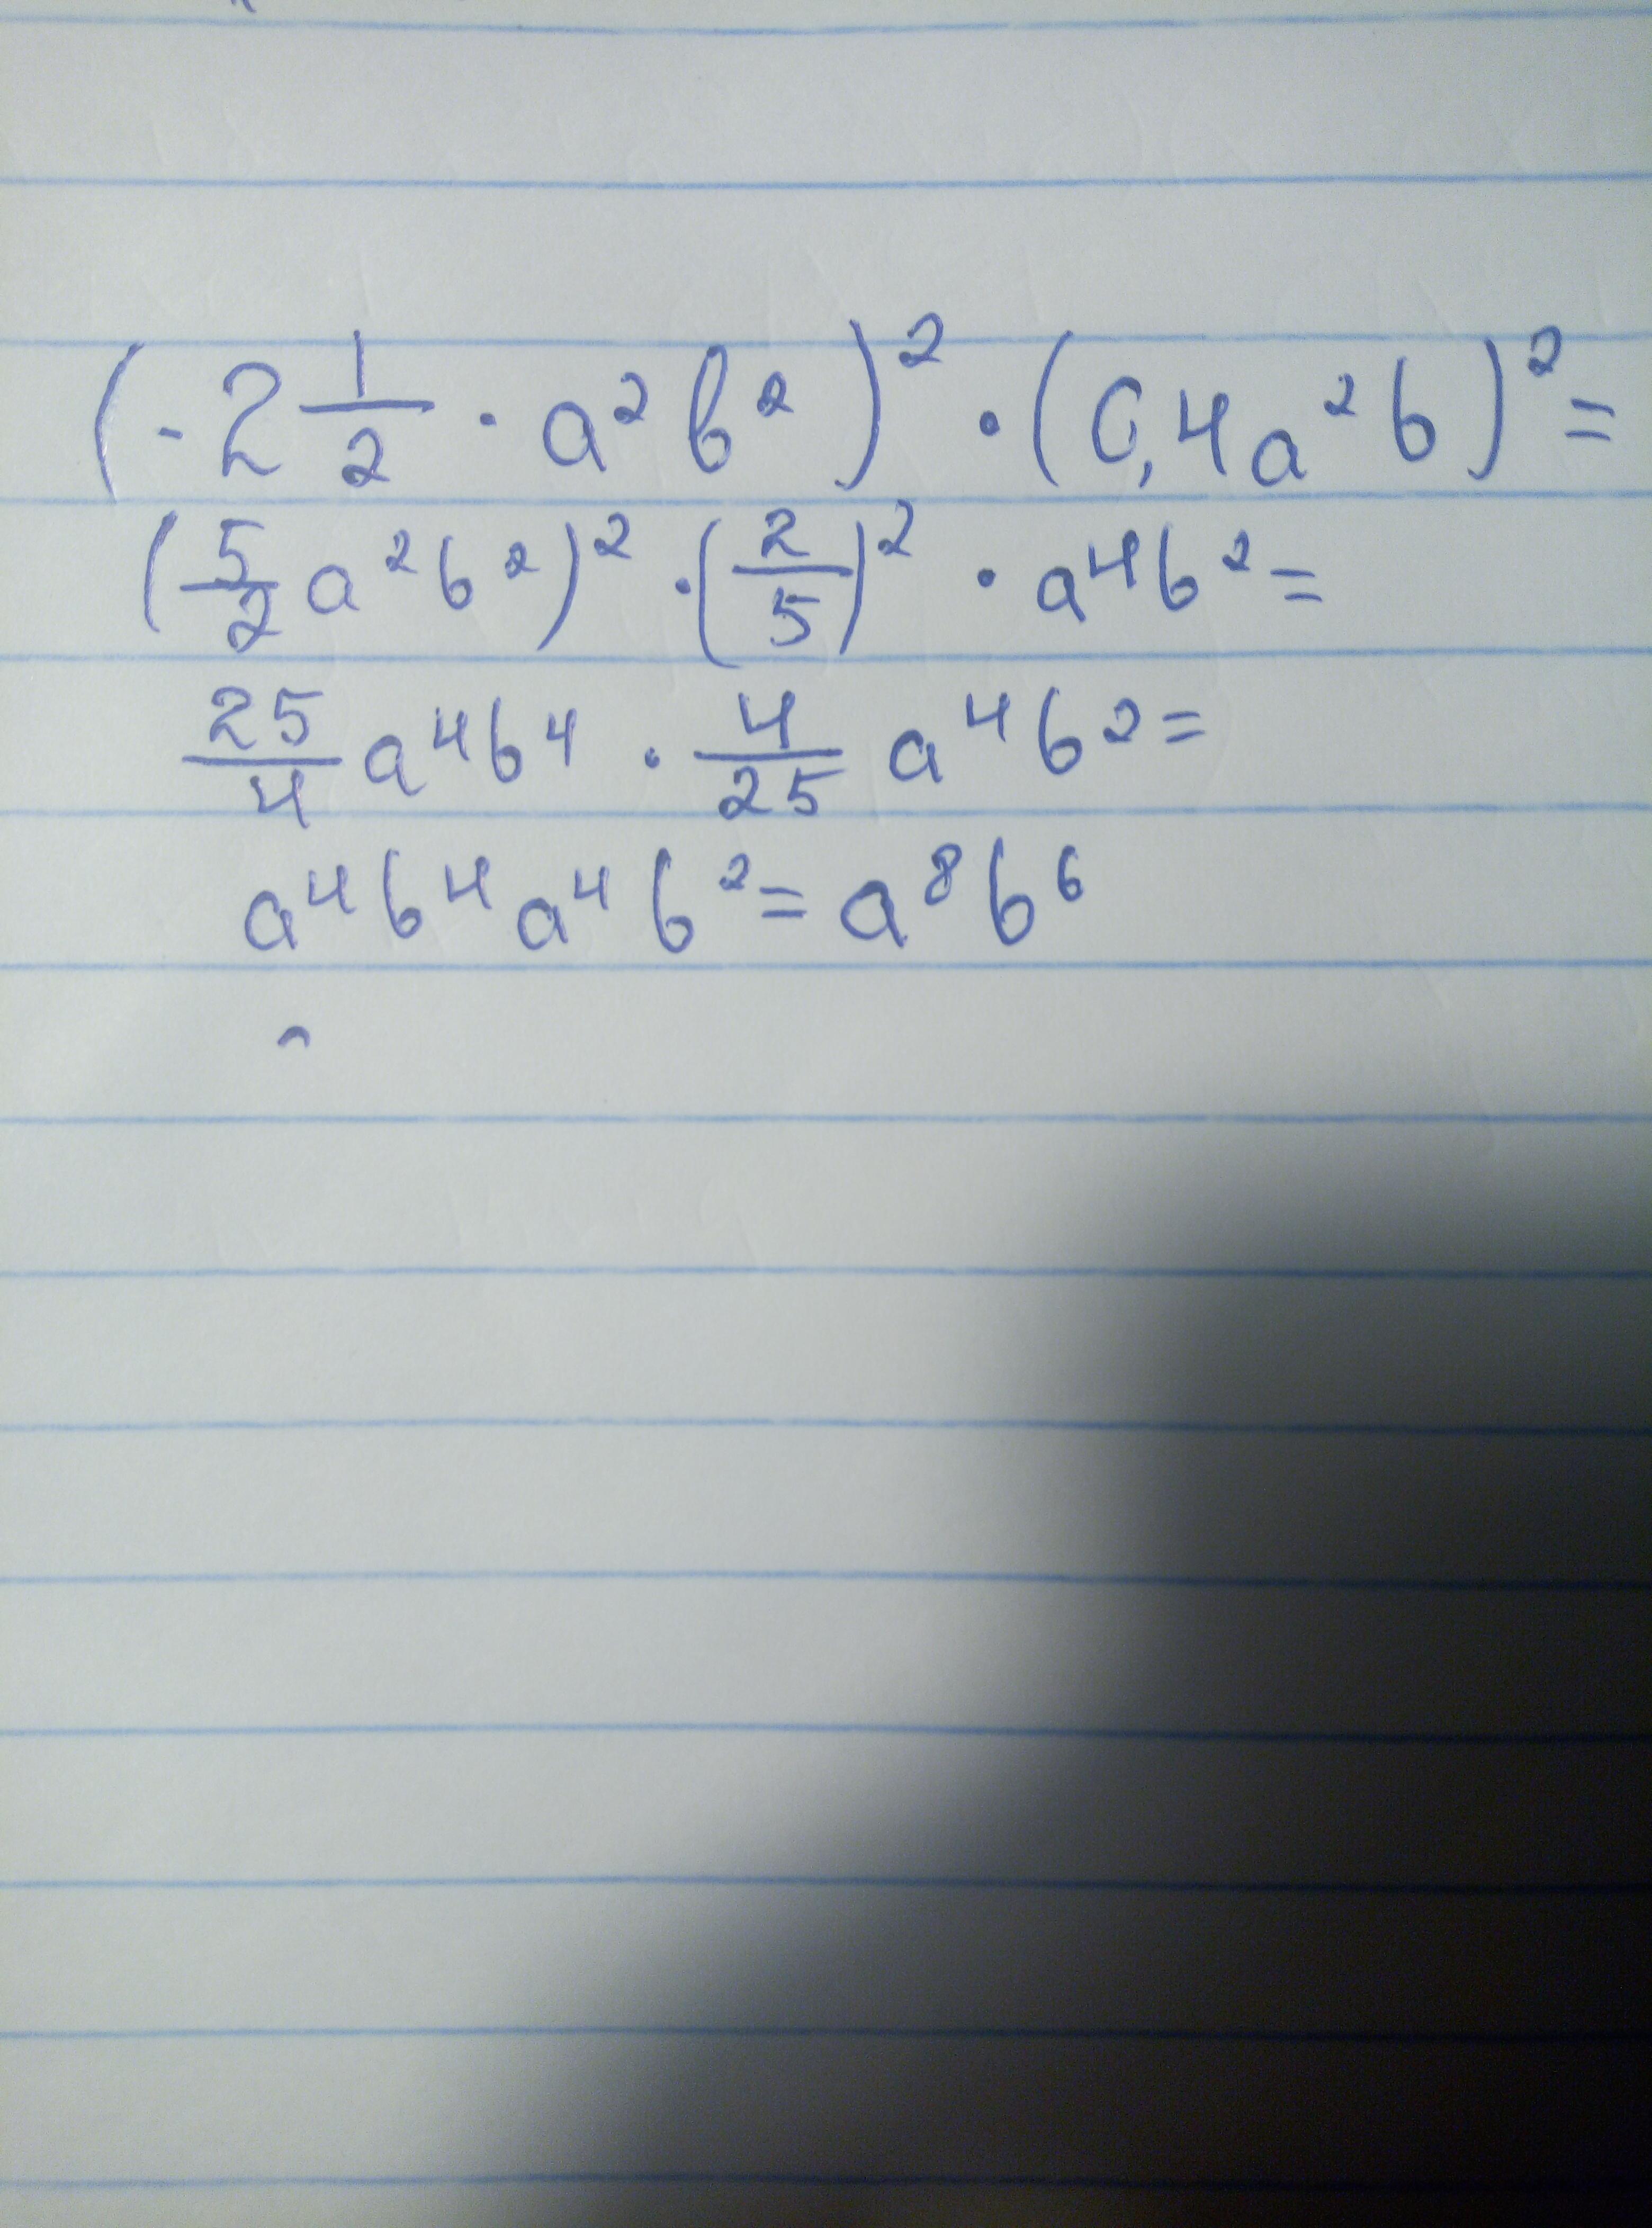 (-2 1/2 · a² b²)² · (0,4a²b)² =
(5/2 a²b²)² · (2/5)² · a⁴b² =
25/4 a⁴b⁴ · 4/25 a⁴b² =
a⁴b⁴a⁴b² = a⁸b⁶